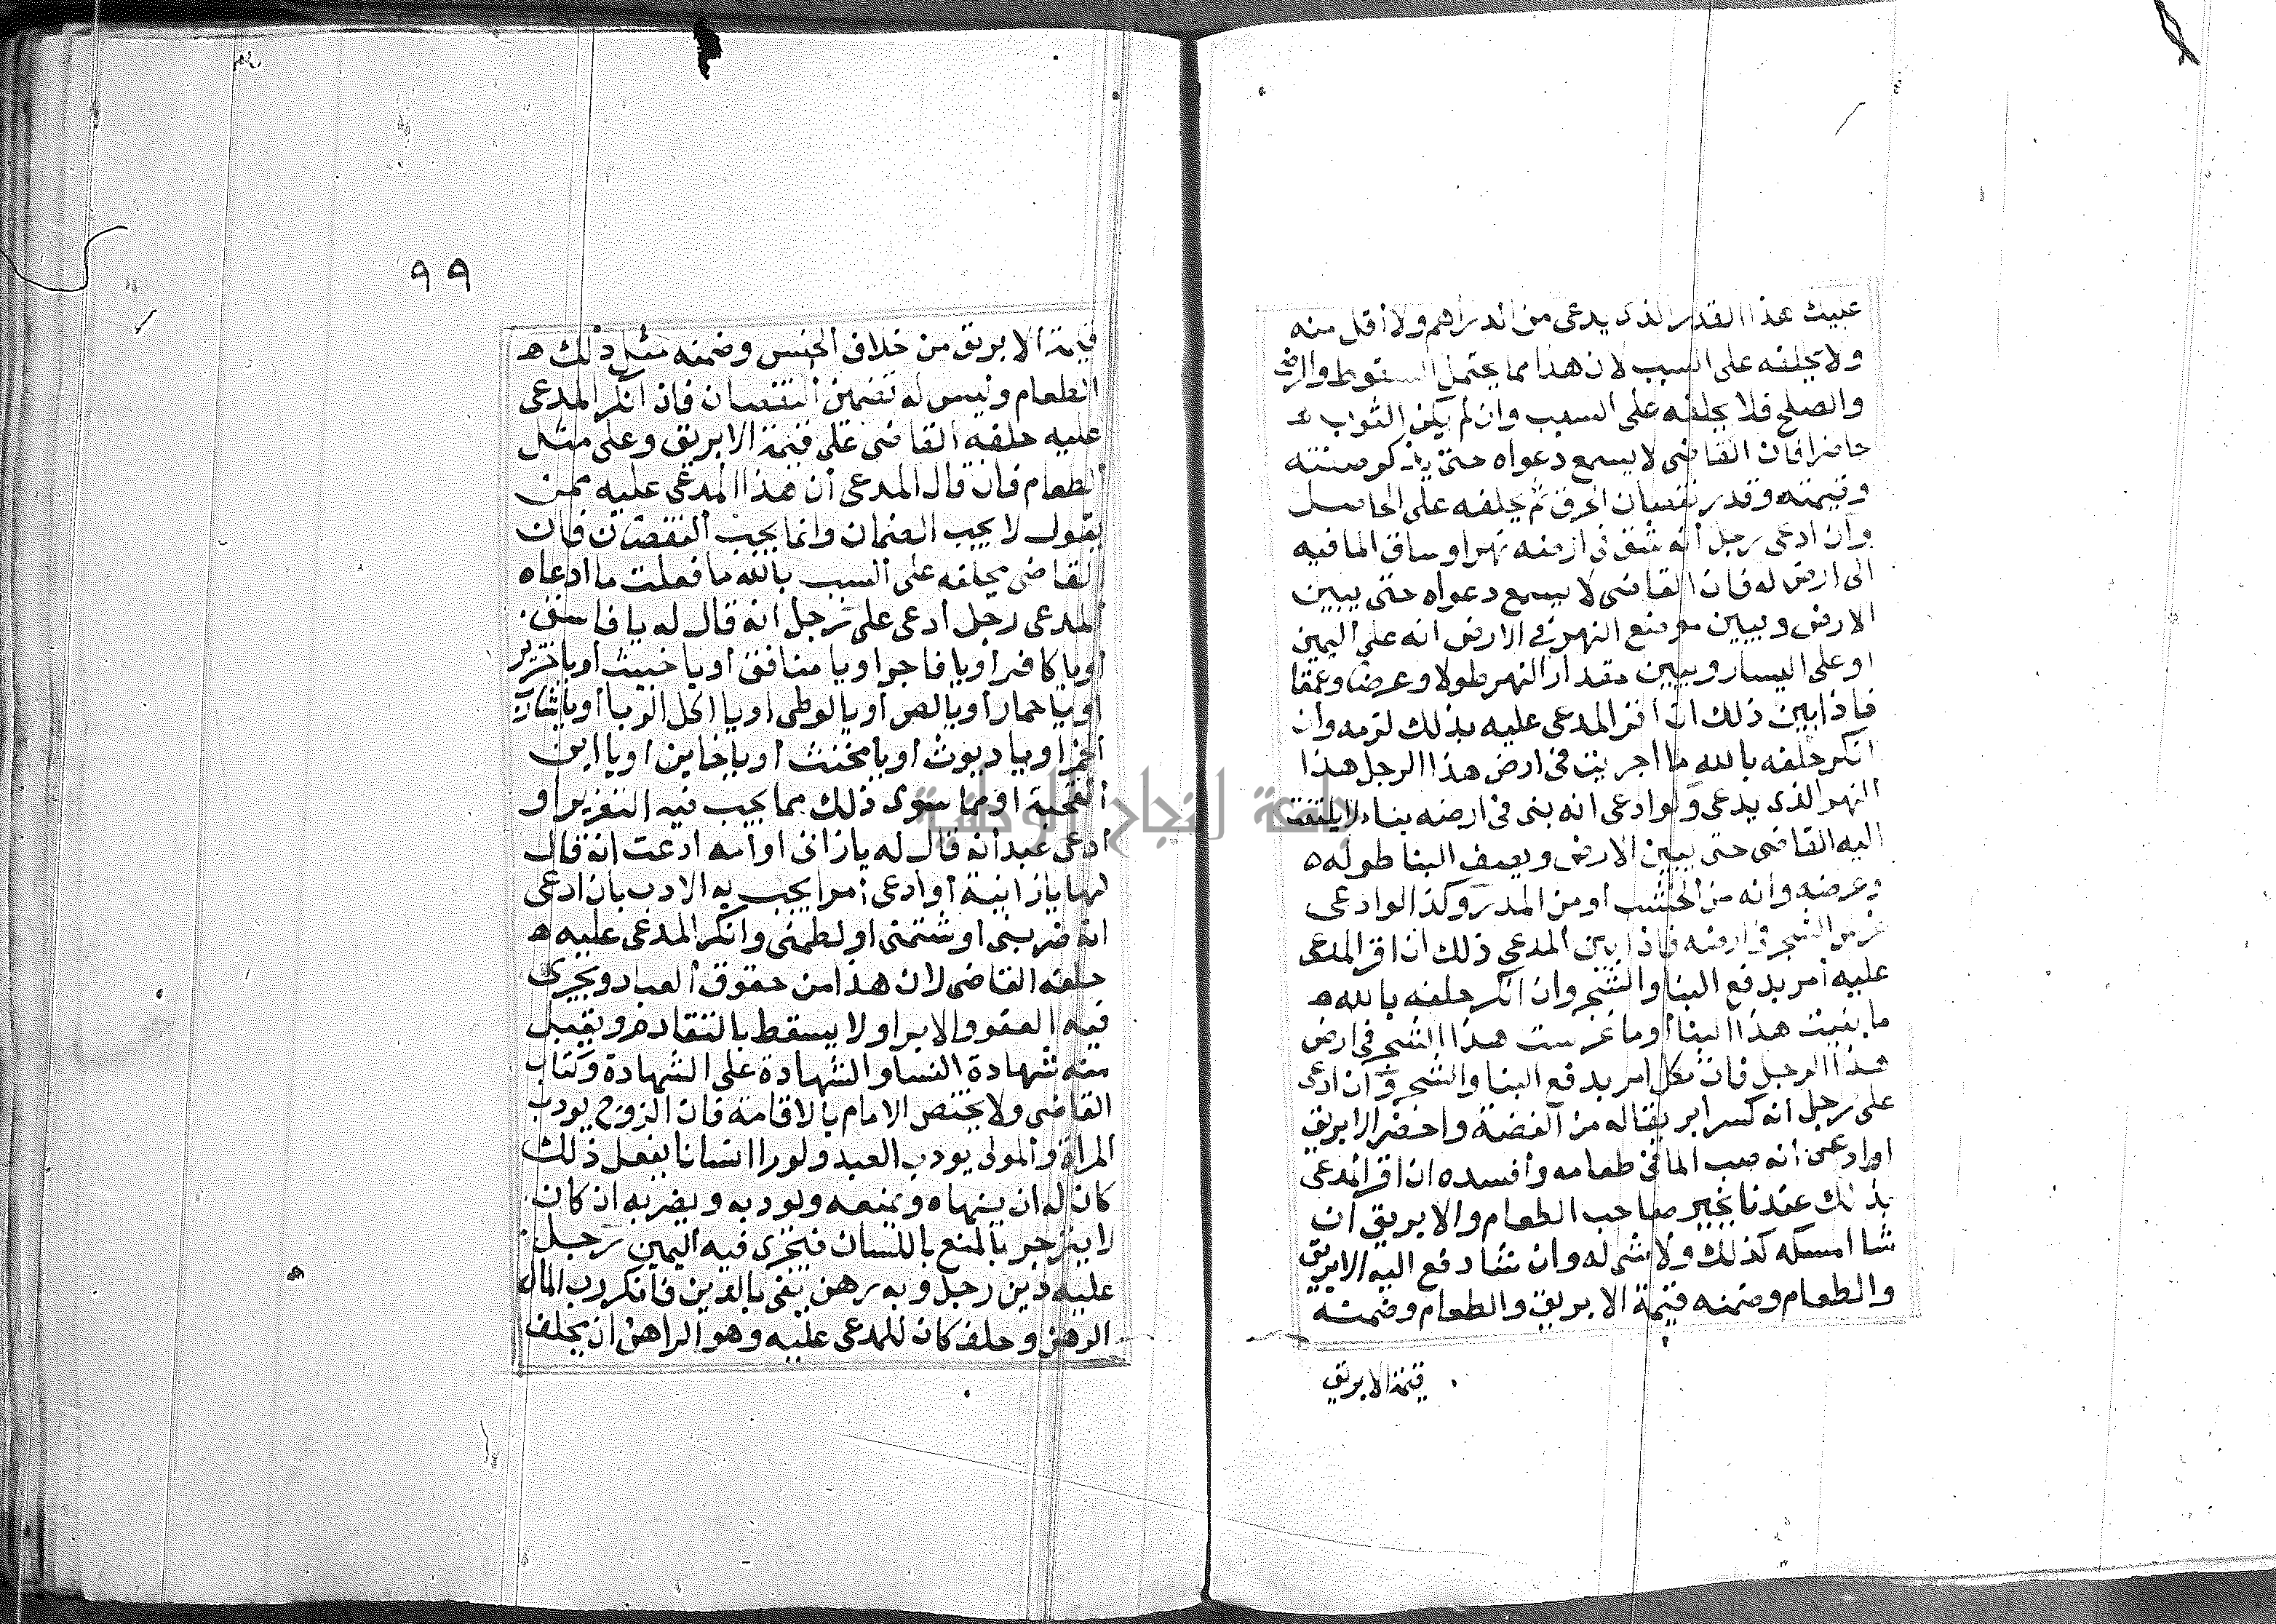 عليك هذا القدر الذى يدعى من الدراهم ولا أقل منه
ولا يحلفه على السبب لان هذا مما يحتمل السقوط والرضى
والصلح فلا يحلفه على السبب وان لم يكن الثوب
حاضرا فان القاضى لا يسمع دعواه حتى يذكر صفته
وقيمته وقدر نقصان الخرق ثم يحلفه على الحاصل
وان ادعى رجل أنه شق فى ارضه نهرا وساق الما فيه
الى ارض له فان القاضى لا يسمع دعواه حتى يبين
الارض ويبين موضع النهر فى الارض انه على اليمين
او على اليسار ويبين مقدار النهر طولا وعرضا وعمقا
فاذا بين ذلك ان اقر المدعى عليه بذلك لزمه وان
انكر حلفه بالله ما اجريت فى ارض هذا الرجل هذا
النهر الذى يدعى ولو ادعى انه بنى فى ارضه بناء لا يلتفت
اليه القاضى حتى يبين الارض ويصف البنا طوله
وعرضه وانه من الخشب او من المدر وكذا لو ادعى
غرس الشجر فى ارضه فاذا بين المدعى ذلك ان اقر المدعى
عليه أمر بدفع البنا والشجر وان انكر حلفه بالله
ما بنيت هذا البنا أو ما غرست هذا الشجر فى ارض
هذا الرجل فان نكل امر بدفع البنا والشجر وان ادعى
على رجل انه كسر ابريقا له من الفضة واحضر الابريق
او ادعى أنه صب الما فى طعامه وأفسده ان اقر المدعى
بذلك عندنا يخير صاحب الطعام والابريق ان
شا امسكه كذلك ولا شى له وان شا دفع اليه الابريق
والطعام وضمنه قيمة الابريق والطعام وضمنه
قيمة الابريق
٩٩
قيمة الابريق من خلاف الجنس وضمنه مثل ذلك
الطعام وليس له تضمين النقصان فان انكر المدعى
عليه حلفه القاضى على قيمة الابريق وعلى مثل
الطعام فان قال المدعى أن هذا المدعى عليه ممن
يقول لا يجب الضمان وانما يجب النقصان فان
القاضى يحلفه على السبب بالله ما فعلت ما ادعاه
المدعى رجل ادعى على رجل انه قال له يا فاسق
أو يا كافر أو يا فاجر او يا منافق أو يا خبيث أو يا خنزير
أو يا حمار أو يا لص أو يا لوطى أو يا اكل الربا أو يا شارب
الخمر او يا ديوث أو يا مخنث أو يا خاين او يا ابن
القحبة او مما سوى ذلك مما يجب فيه التعزير او
ادعى عبد أنه قال له يا زانى او امه ادعت انه قال
لها يا زانية أو ادعى أمرا يجب به الادب بان ادعى
انه ضربنى او شتمنى او لطمنى وانكر المدعى عليه
حلفه القاضى لان هذا من حقوق العباد ويجرى
فيه العفو والابرا ولا يسقط بالتقادم ويقبل
منه شهادة النسا والشهادة على الشهادة وكتاب
القاضى ولا يختص الامام بالاقامة فان الزوج يودب
المراة والمولى يودب العبد ولو را انسانا يفعل ذلك
كان له ان ينهاه ويمنعه ويودبه ويضربه ان كان
لا ينزجر بالمنع باللسان فيجرى فيه اليمين رجل
عليه دين رجل وبه رهن يفى بالدين فانكر رب المال
الرهن وحلف كان للمدعى عليه وهو الراهن ان يحلف
جامعة النجاح الوطنية